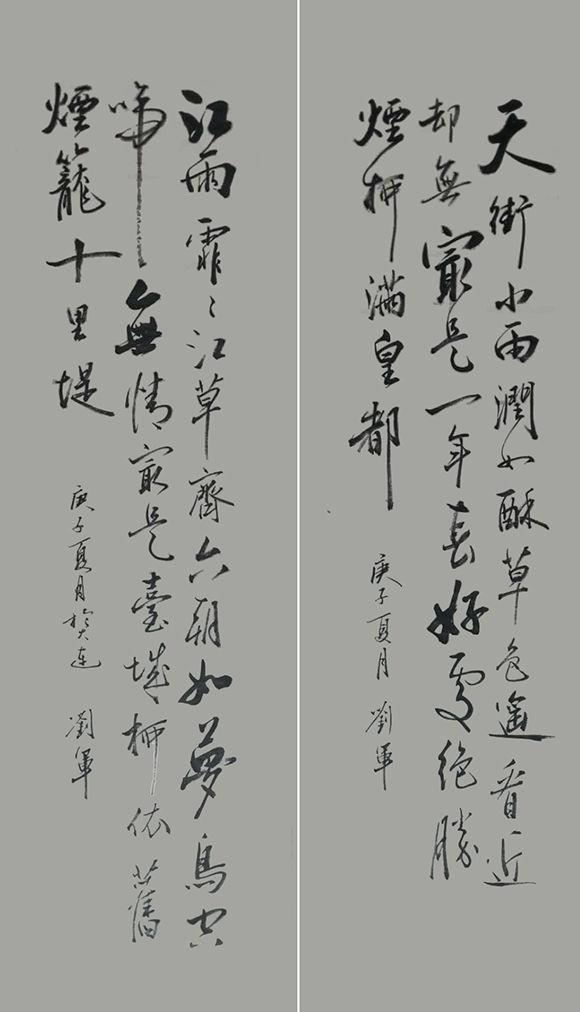 天街小雨潤如酥草色遙看近
却無最是一年春好處絕勝
煙柳滿皇都
庚子夏月 劉軍
江雨霏〻江草齊六朝如夢鳥空
啼無情最是臺城柳依舊
煙籠十里堤
庚子夏月於大連 劉軍